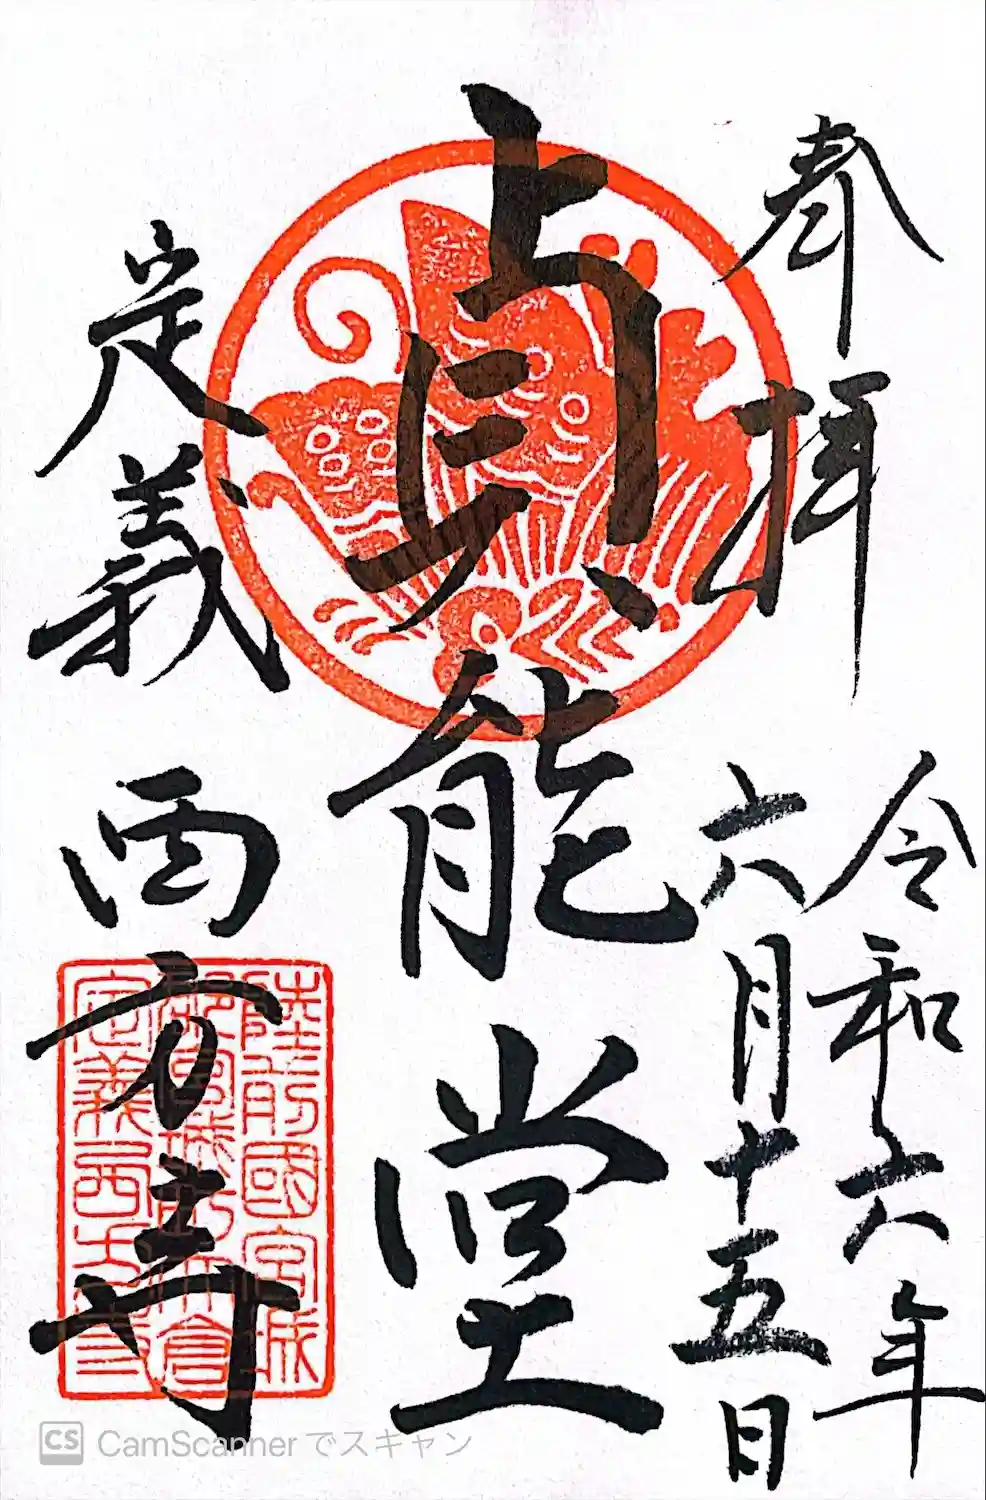 奉拝
令和六年
六月十五日
貞能堂
定義
西方寺
陸前國宮城
定義西方寺
CS CamScanner でスキャン